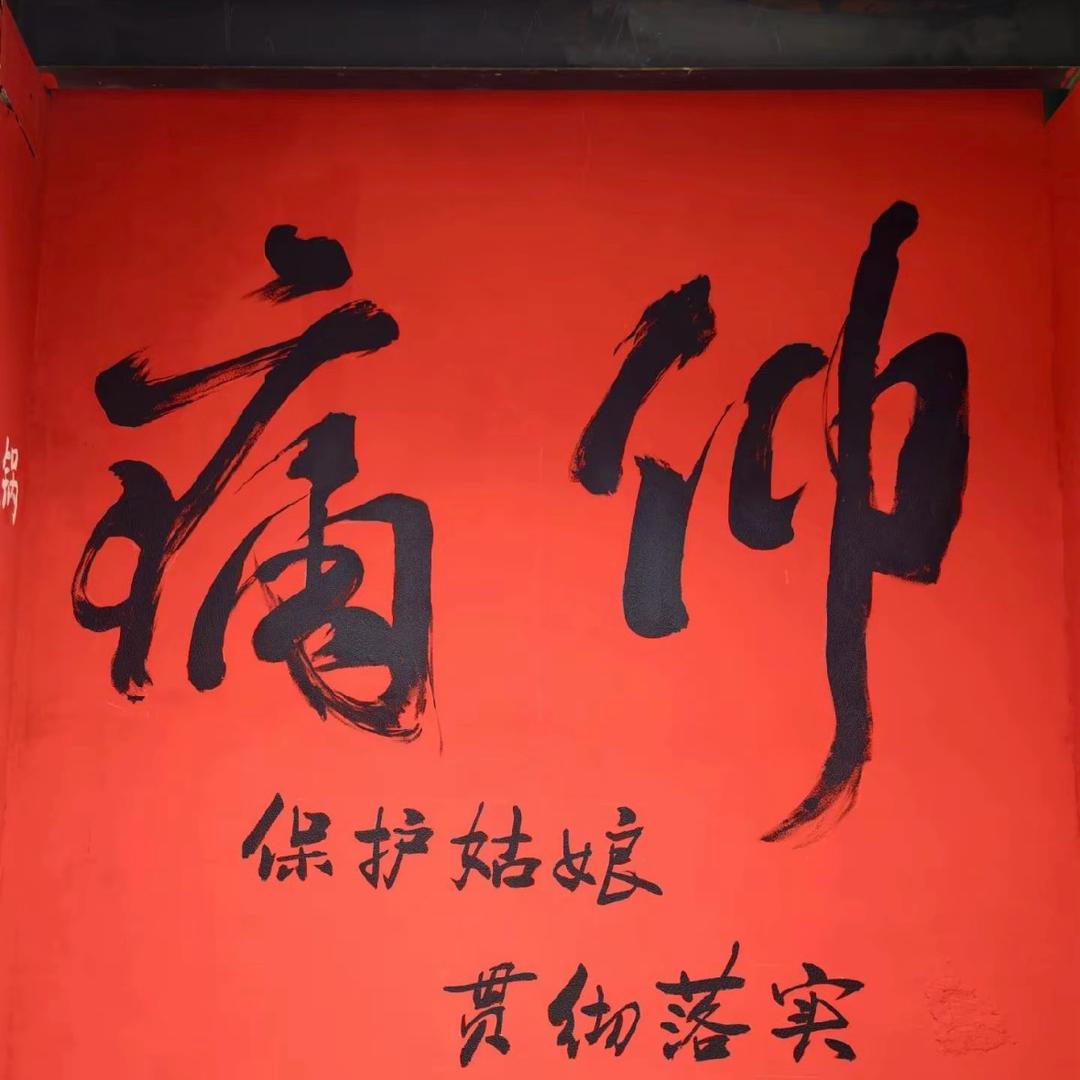 痛仰
保护姑娘
贯彻落实
锅